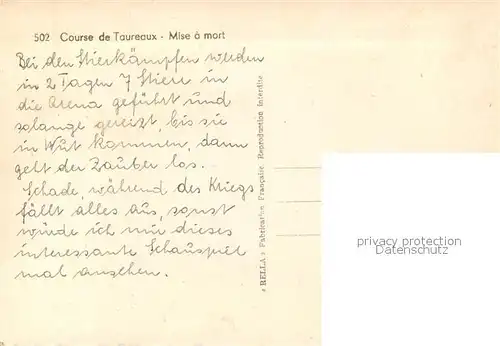 502 Course de Taureaux - Mise à mort
Bei den Stierkämpfen werden
in 2 Tagen 7 Stiere in
die Arena geführt und
solange gereizt, bis sie
in Wut kommen, dann
geht der Zauber los.
Schade, während des Kriegs
fällt alles aus, sonst
würde ich mir dieses
interessante Schauspiel
mal ansehen.
« BELLA » Fabrication Française. Reproduction Interdite
privacy protection
Datenschutz